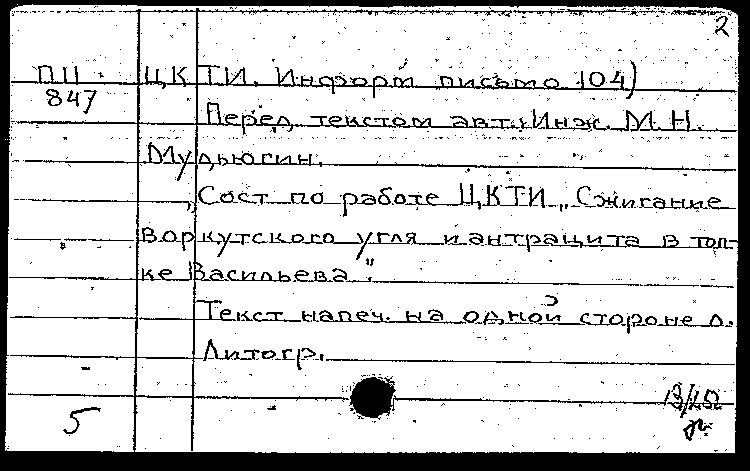 2
ПП ЦКТИ. Информ письмо 104)
847
Перед текстом авт.: Инж. М. Н.
Мудьюгин.
„Сост по работе ЦКТИ „Сжигание
воркутского угля и антрацита в топ-
ке Васильева".
Текст напеч. на одной стороне л.
Литогр.
5